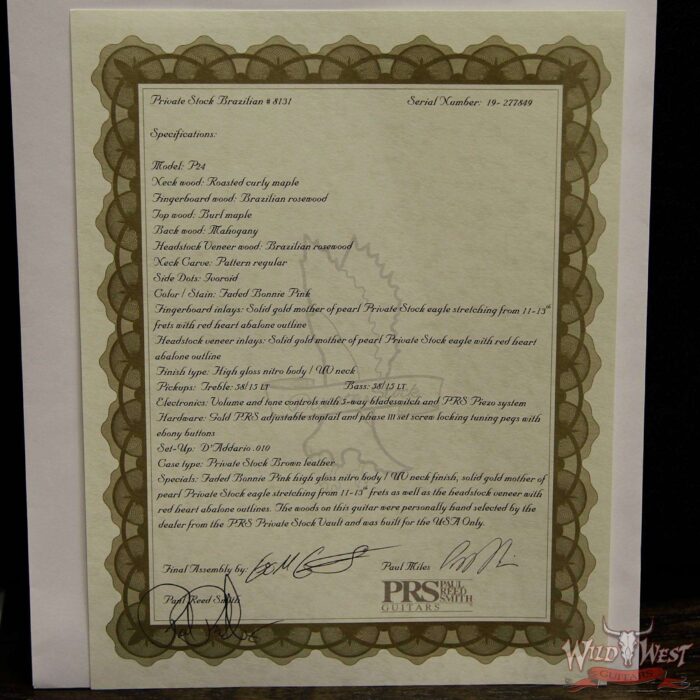 Private Stock Brazilian # 8131 Serial Number: 19- 277849
Specifications:
Model: P24
Neck wood: Roasted curly maple
Fingerboard wood: Brazilian rosewood
Top wood: Burl maple
Back wood: Mahogany
Headstock Veneer wood: Brazilian rosewood
Neck Carve: Pattern regular
Side Dots: Ivoroid
Color / Stain: Faded Bonnie Pink
Fingerboard inlays: Solid gold mother of pearl Private Stock eagle stretching from 11-13th
frets with red heart abalone outline
Headstock veneer inlays: Solid gold mother of pearl Private Stock eagle with red heart
abalone outline
Finish type: High gloss nitro body / UV neck
Pickups: Treble: 58/15 LT Bass: 58/15 LT
Electronics: Volume and tone controls with 5-way bladeswitch and PRS Piezo system
Hardware: Gold PRS adjustable stoptail and phase III set screw locking tuning pegs with
ebony buttons
Set-Up: D'Addario .010
Case type: Private Stock Brown leather
Specials: Faded Bonnie Pink high gloss nitro body / UV neck finish, solid gold mother of
pearl Private Stock eagle stretching from 11-13th frets as well as the headstock veneer with
red heart abalone outlines. The woods on this guitar were personally hand selected by the
dealer from the PRS Private Stock Vault and was built for the USA Only.
Final Assembly by: Paul Miles
Paul Reed Smith
PRS PAUL REED SMITH
GUITARS
WILD WEST
GUITARS